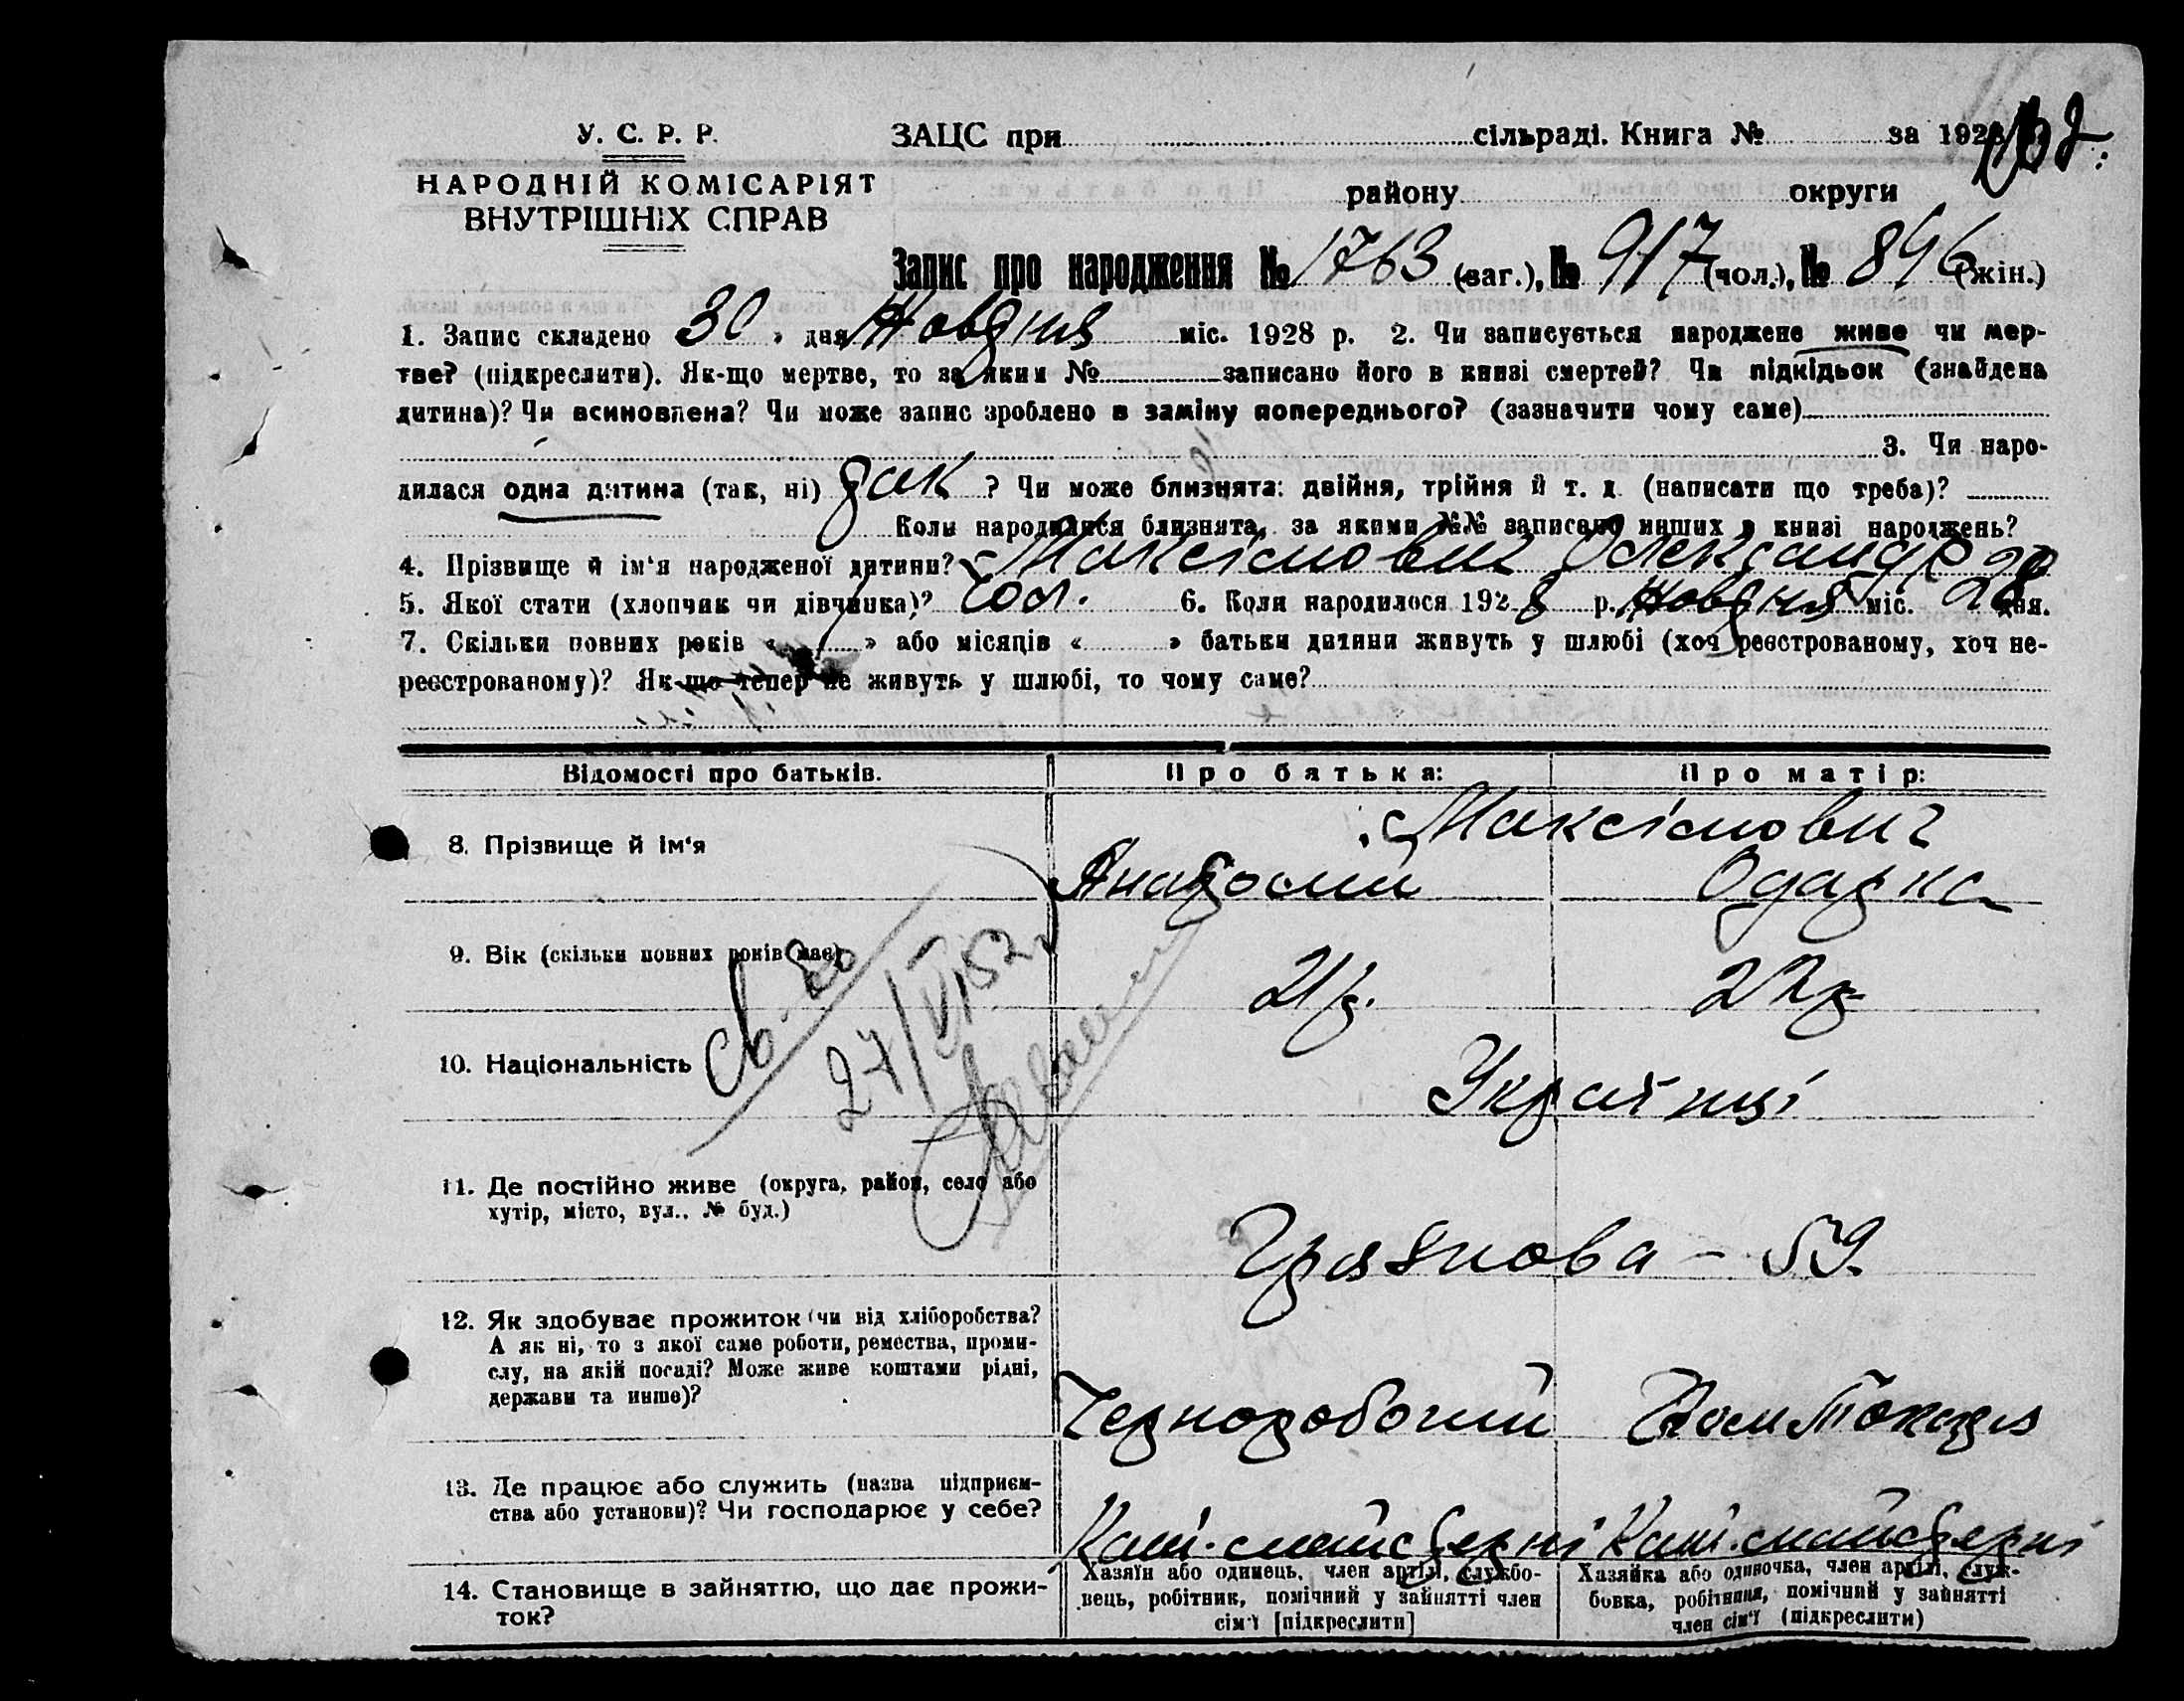 У. С. Р. Р.
НАРОДНІЙ КОМІСАРІЯТ
ВНУТРІШНІХ СПРАВ
ЗАЦС при сільраді. Книга № за 1928
району округи
Запис про народження № 1763 (заг.), № 917 (чол.), № 846 (жін.)
1. Запис складено 30 » дня Жовтня міс. 1928 р. 2. Чи записується народжене живе чи мер-
тве? (підкреслити). Як-що мертве, то за яким № записано його в книзі смертей? Чи підкідьок (знайдена
дитина)? Чи всиновлена? Чи може запис зроблено в заміну попереднього? (зазначити чому саме)
3. Чи наро-
дилася одна дитина (так, ні) так ? Чи може близнята: двійня, трійня й т. д. (написати що треба)?
Коли народилися близнята, за якими №№ записано инших в книзі народжень?
4. Прізвище й ім'я народженої дитини? Максімович Олександр
5. Якої стати (хлопчик чи дівчинка)? чол. 6. Коли народилося 1928 р. Жовтня міс. 28 дня.
7. Скільки повних років « 1 » або місяців « » батьки дитини живуть у шлюбі (хоч реєстрованому, хоч не-
реєстрованому)? Як-що тепер не живуть у шлюбі, то чому саме?
Відомості про батьків. Про батька: Про матір:
8. Прізвище й ім'я Максімович
Анатолій Одарка
9. Вік (скільки повних років має) 21 р. 22 р
10. Національність Українці
27/VI,52
11. Де постійно живе (округа, район, село або
хутір, місто, вул., № буд.)
Грязнова - 59.
12. Як здобуває прожиток (чи від хліборобства?
А як ні, то з якої саме роботи, ремества, проми-
слу, на якій посаді? Може живе коштами рідні,
держави та инше)?
Черноробочий
13. Де працює або служить (назва підприєм-
ства або установи)? Чи господарює у себе?
Кам. майстерні Кам. майстерні
14. Становище в зайняттю, що дає прожи-
ток?
Хазяїн або одинець, член артілі, службо-
вець, робітник, помічний у зайнятті член
сім'ї [підкреслити]
Хазяйка або одиночка, член артілі, служ-
бовка, робітниця, помічний у зайнятті
член сім'ї (підкреслити)